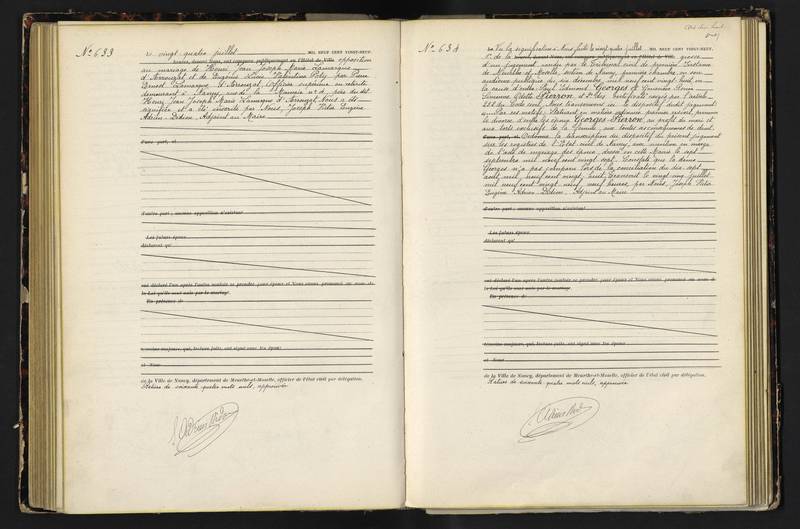 N° 633
Le vingt quatre juillet MIL NEUF CENT VINGT-NEUF,
heures, devant Nous, ont comparu publiquement en l'Hôtel de Ville opposition
au mariage de Henri Jean Joseph Marie Lamarque
d'Arrouzat et de Eugénie Lucie Valentine Poty par Pierre
Ernest Lamarque d'Arrouzat, Officier supérieur en retraite
demeurant à Nancy, rue de la n° 4, père du dit
Henri Jean Joseph Marie Lamarque d'Arrouzat Nous a été
signifiée et a été inscrite par Nous, Joseph Victor Eugène
Adrien Didion, Adjoint au Maire
d'une part, et
d'autre part ; aucune opposition n'existant
Les futurs époux
déclarent qu'
ont déclaré l'un après l'autre vouloir se prendre pour époux et Nous avons prononcé au nom de
la Loi qu'ils sont unis par le mariage.
En présence de
témoins majeurs, qui, lecture faite, ont signé avec les époux
et Nous
de la Ville de Nancy, département de Meurthe-et-Moselle, officier de l'état civil par délégation.
Rature de soixante quatre mots nuls, approuvée
N° 634
Vu la signification à Nous faite le vingt quatre juillet MIL NEUF CENT VINGT-NEUF,
heures, devant Nous, ont comparu publiquement en l'Hôtel de Ville grosse
d'un jugement rendu par le Tribunal civil de première Instance
de Meurthe et Moselle, séant à Nancy, première chambre, en son
audience publique du dix décembre mil neuf cent vingt huit en
la cause d'entre Paul Edmond Georges et
Simonne Odette Pierron
252 du Code civil, Nous transcrivons ici le dispositif dudit jugement:
Par ces motifs, Statuant en matière ordinaire premier ressort, prononce
le divorce d'entre les époux Georges-Pierron, au profit du mari et
aux torts exclusifs de la femme, avec toutes conséquences de droit.
d'une part, et Ordonne la transcription du dispositif du présent jugement
sur les registres de l'Etat civil de Nancy, avec mention en marge
de l'acte de mariage des époux, dressé en cette Mairie le sept
septembre mil neuf cent vingt sept. Constate que la dame
Georges n'a pas comparu lors de la conciliation du dix sept
août mil neuf cent vingt huit. Transcrit le vingt cinq juillet
mil neuf cent vingt neuf, neuf heures, par Nous, Joseph Victor
Eugène Adrien Didion, Adjoint au Maire
d'autre part ; aucune opposition n'existant
Les futurs époux
déclarent qu'
ont déclaré l'un après l'autre vouloir se prendre pour époux et Nous avons prononcé au nom de
la Loi qu'ils sont unis par le mariage.
En présence de
témoins majeurs, qui, lecture faite, ont signé avec les époux
et Nous
de la Ville de Nancy, département de Meurthe-et-Moselle, officier de l'état civil par délégation.
Rature de soixante quatre mots nuls, approuvée